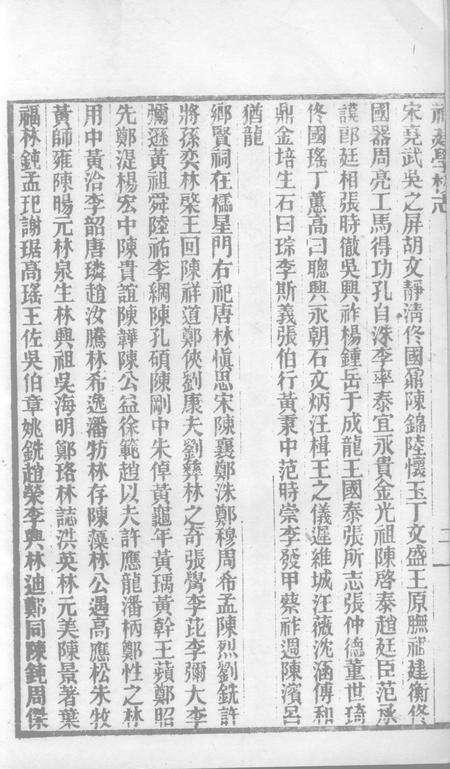 福建學校志
宋堯武吳之屏胡文靜淸佟國鼐陳錦陸懷玉丁文盛王原膴祖建衡佟
國器周亮工馬得功孔自洙李率泰宜永貴金光祖陳啓泰趙廷臣范承
謨郎廷相張時徹吳興祚楊鍾岳于成龍王國泰張所志張仲德董世琦
佟國瑤丁蕙高曰聰興永朝石文炳汪楫王之儀遲維城汪薇沈涵傅和
鼎金培生石曰琮李斯義張伯行黃秉中范時崇李發甲蔡祚週陳濱呂
猶龍
鄉賢祠在櫺星門右祀唐林愼思宋陳襄鄭洙鄭穆周希孟陳烈劉銑許
將孫奕林槩王回陳祥道鄭俠劉康夫劉彝林之奇張觷李芘李彌大李
彌遜黃祖舜陸祐李綱陳孔碩陳剛中朱倬黃龜年黃瑀黃幹王蘋鄭昭
先鄭湜楊宏中陳貴誼陳韡陳公益徐範趙以夫許應龍潘柄鄭性之林
用中黃洽李韶唐璘趙汝騰林希逸潘牥林存陳藻林公遇高應松朱牧
黃師雍陳暘元林泉生林興祖吳海明鄭珞林誌洪英林元美陳景著葉
福林鈍孟玘謝琚高瑤王佐吳伯章姚銑趙榮李興林迪鄭同陳鈍周傑